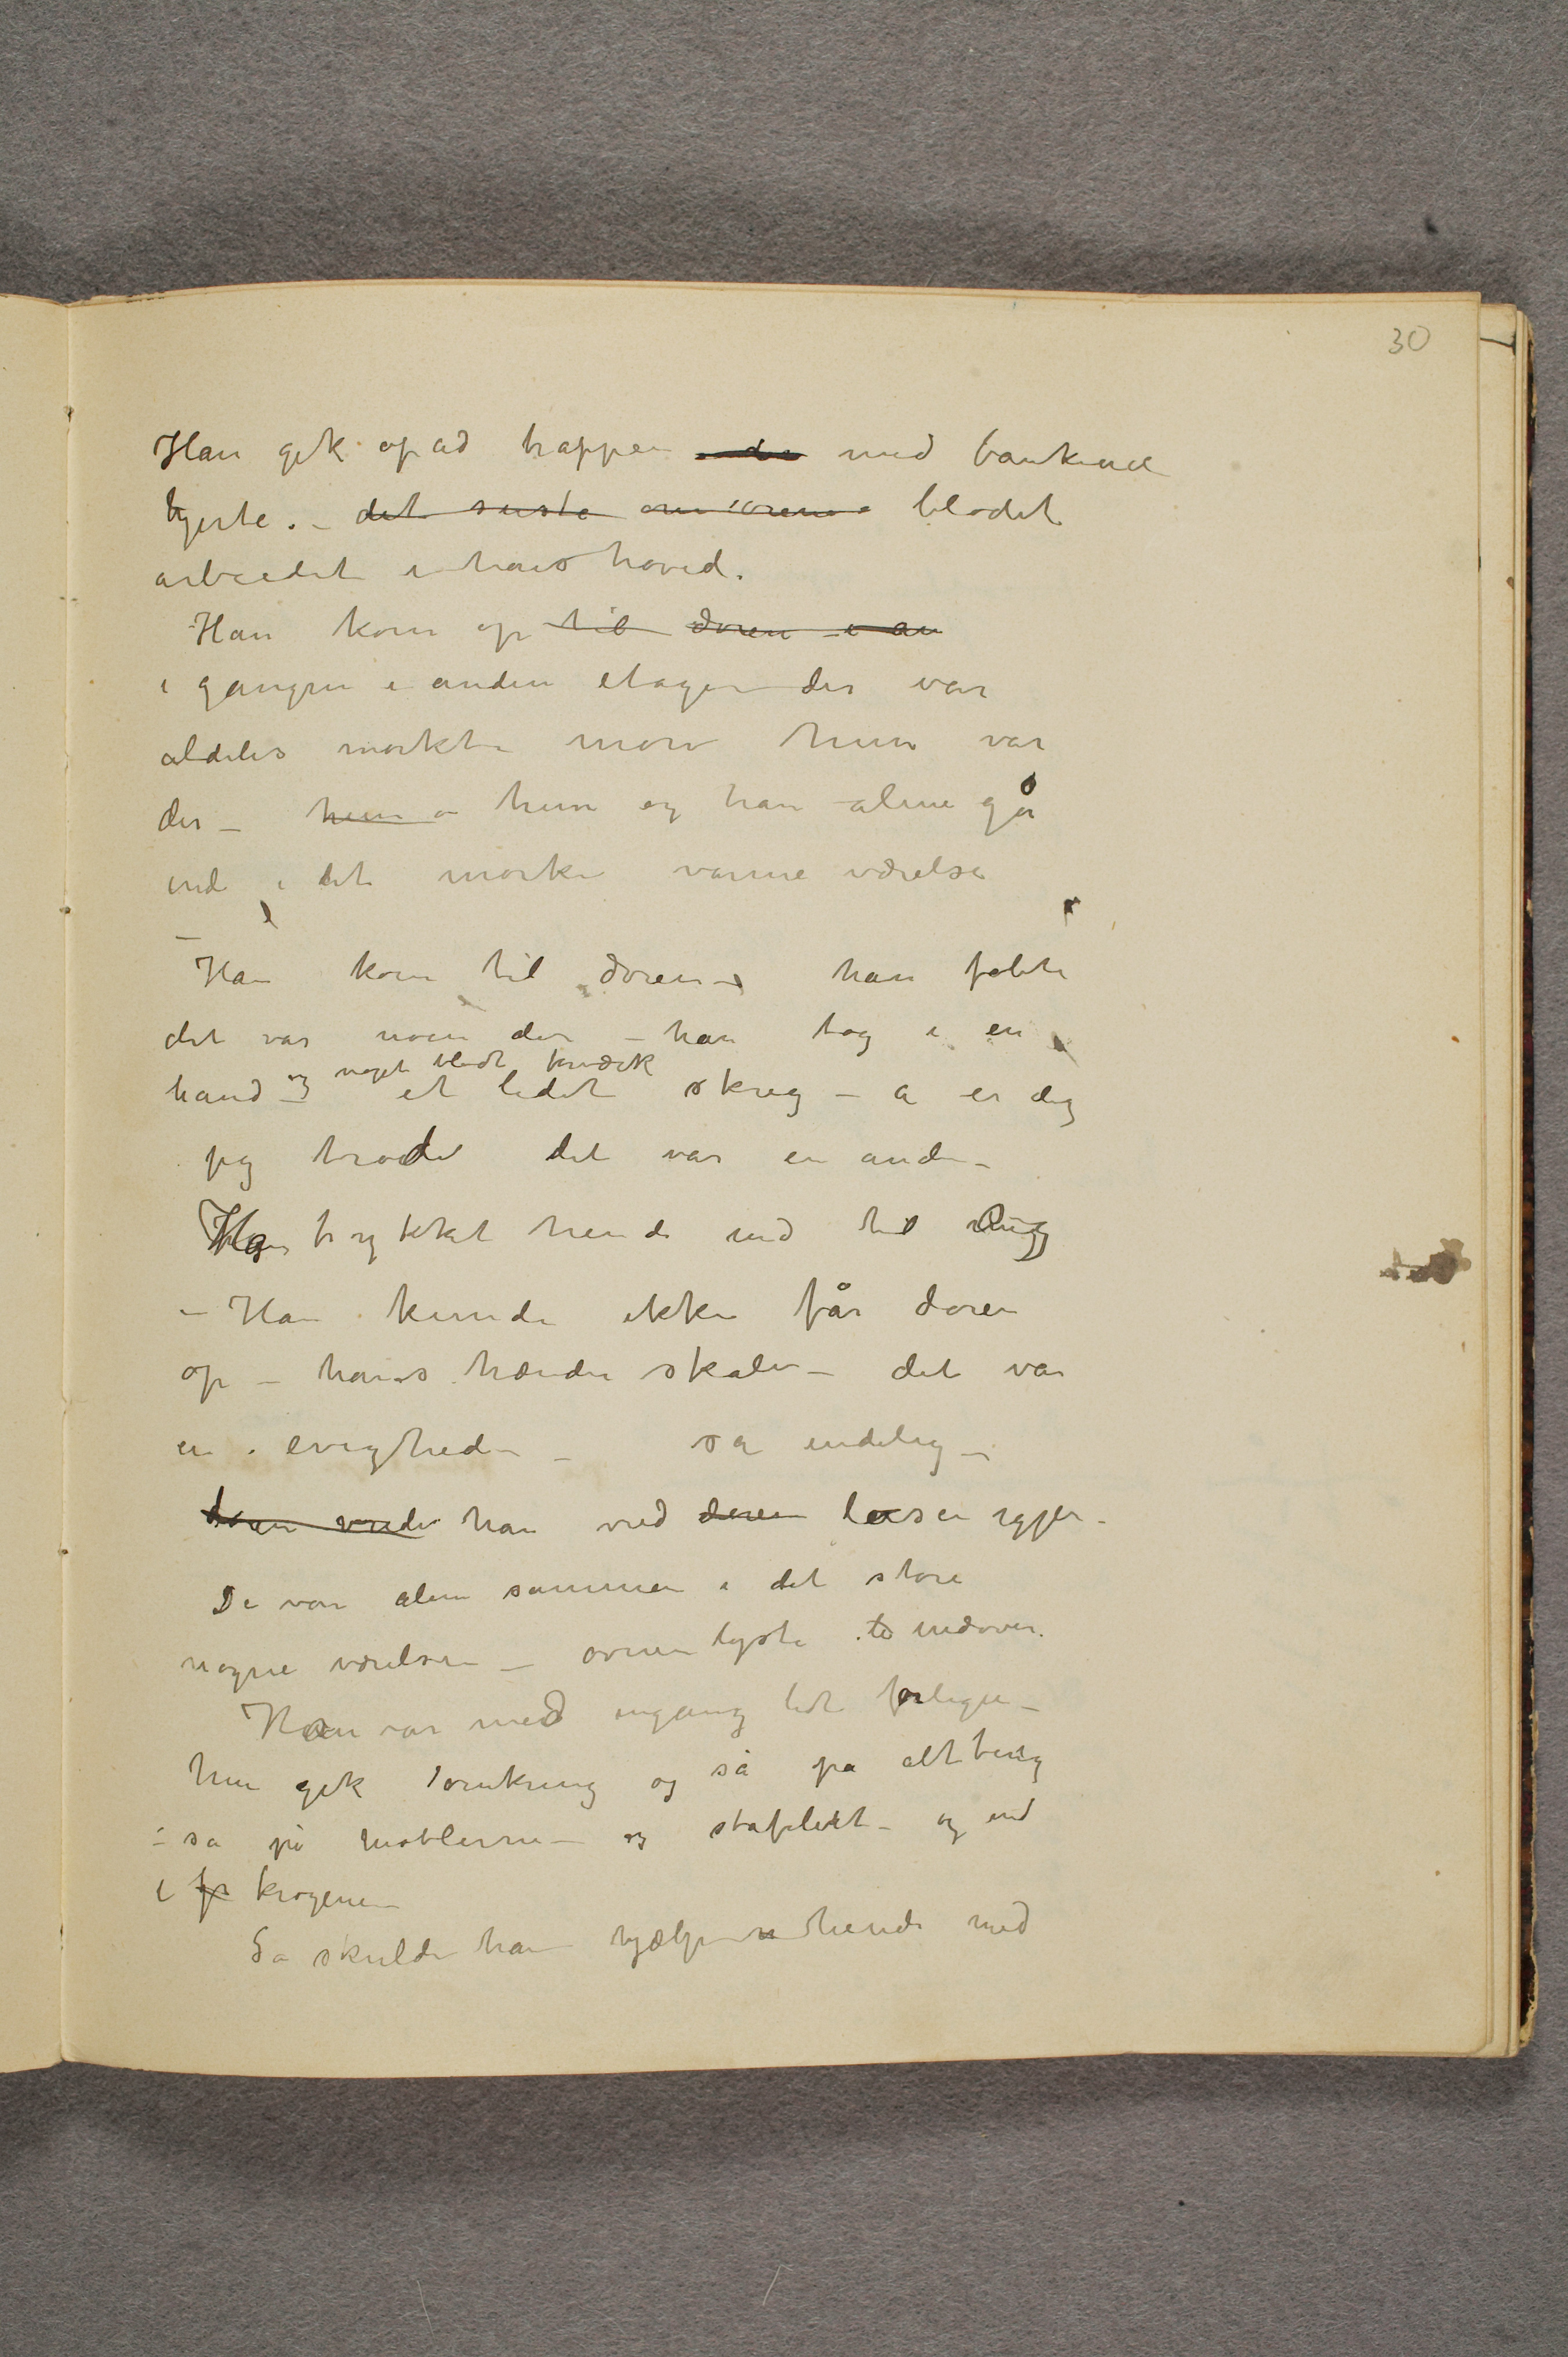 30
Han gik opad trappen med bankende
hjerte. – det suste om ørene blodet
arbeidet i hans hoved.
Han kom op til døren i an
i gangen i anden etage – der var
aldeles mørkt – mon hun var
der – hun – hun og han alene gå
ind i det mørke varme værelse
–
Han kom til døren – han følte
det var noen der – han tog i en
og noget blødt knæk
hånd – et lidet skrig – a er deg
jeg trode det var en anden –
Han trykket hende ind til sig
– Han kunde ikke får døren
op – hans hænder skalv – det var
en evighed – så endelig –
døren vride han vred døren låsen igjen –
De var alene sammen i det store
nøgne værelse – ovnen lyste indover.
Han var med engang lidt forlegen –
hun gik omkring og så på alt ting
– så på møblerne – og stafeliet – og ind
i krogene –
Så skulde han hjælpe hende med